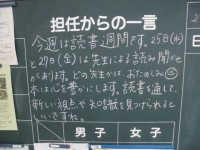 担任からの一言
今週は読書週間です。25日(水)
と27日(金)は先生による読み聞かせ
があります。どの先生かは、おたのしみ☺
本はルを豊かにします。読書を通して、
新しい視点や知識を見つけられると
いいですね。
男子 女子
日